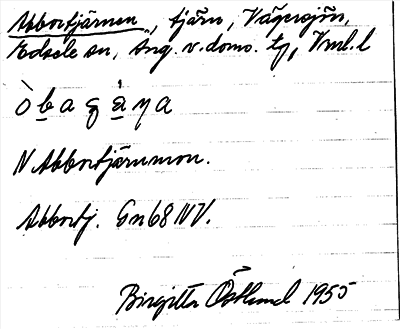 Abbortjärnen, tjärn, Vägersjön,
Edsele sn, Ång. v. doms. tg, Vnl. l
N Abbortjärnmon.
Abbortj. Gn 68 NV.
Birgitta Östlund 1955